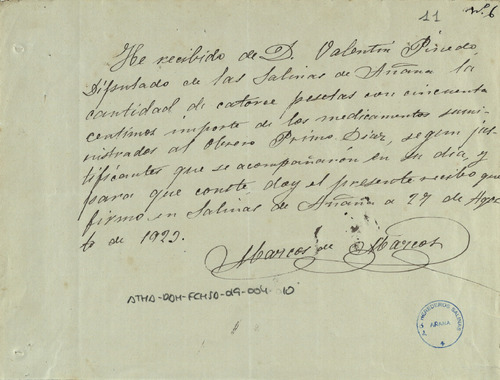 11 Nº 6
He recibido de D. Valentin Pinedo,
Diputado de las Salinas de Añana la
cantidad de catorce pesetas con cincuenta
centimos importe de los medicamentos sumi-
nistrados al Obrero Primo Diaz, segun jus-
tificantes que se acompañarón en su dia, y
para que conste, doy el presente recibo que
firmo en Salinas de Añana a 27 de Agos-
to de 1923.
Marcos de Marcos
ATHA-DOH-FCHSD-019-004 10
HEREDEROS SALINAS
AÑANA